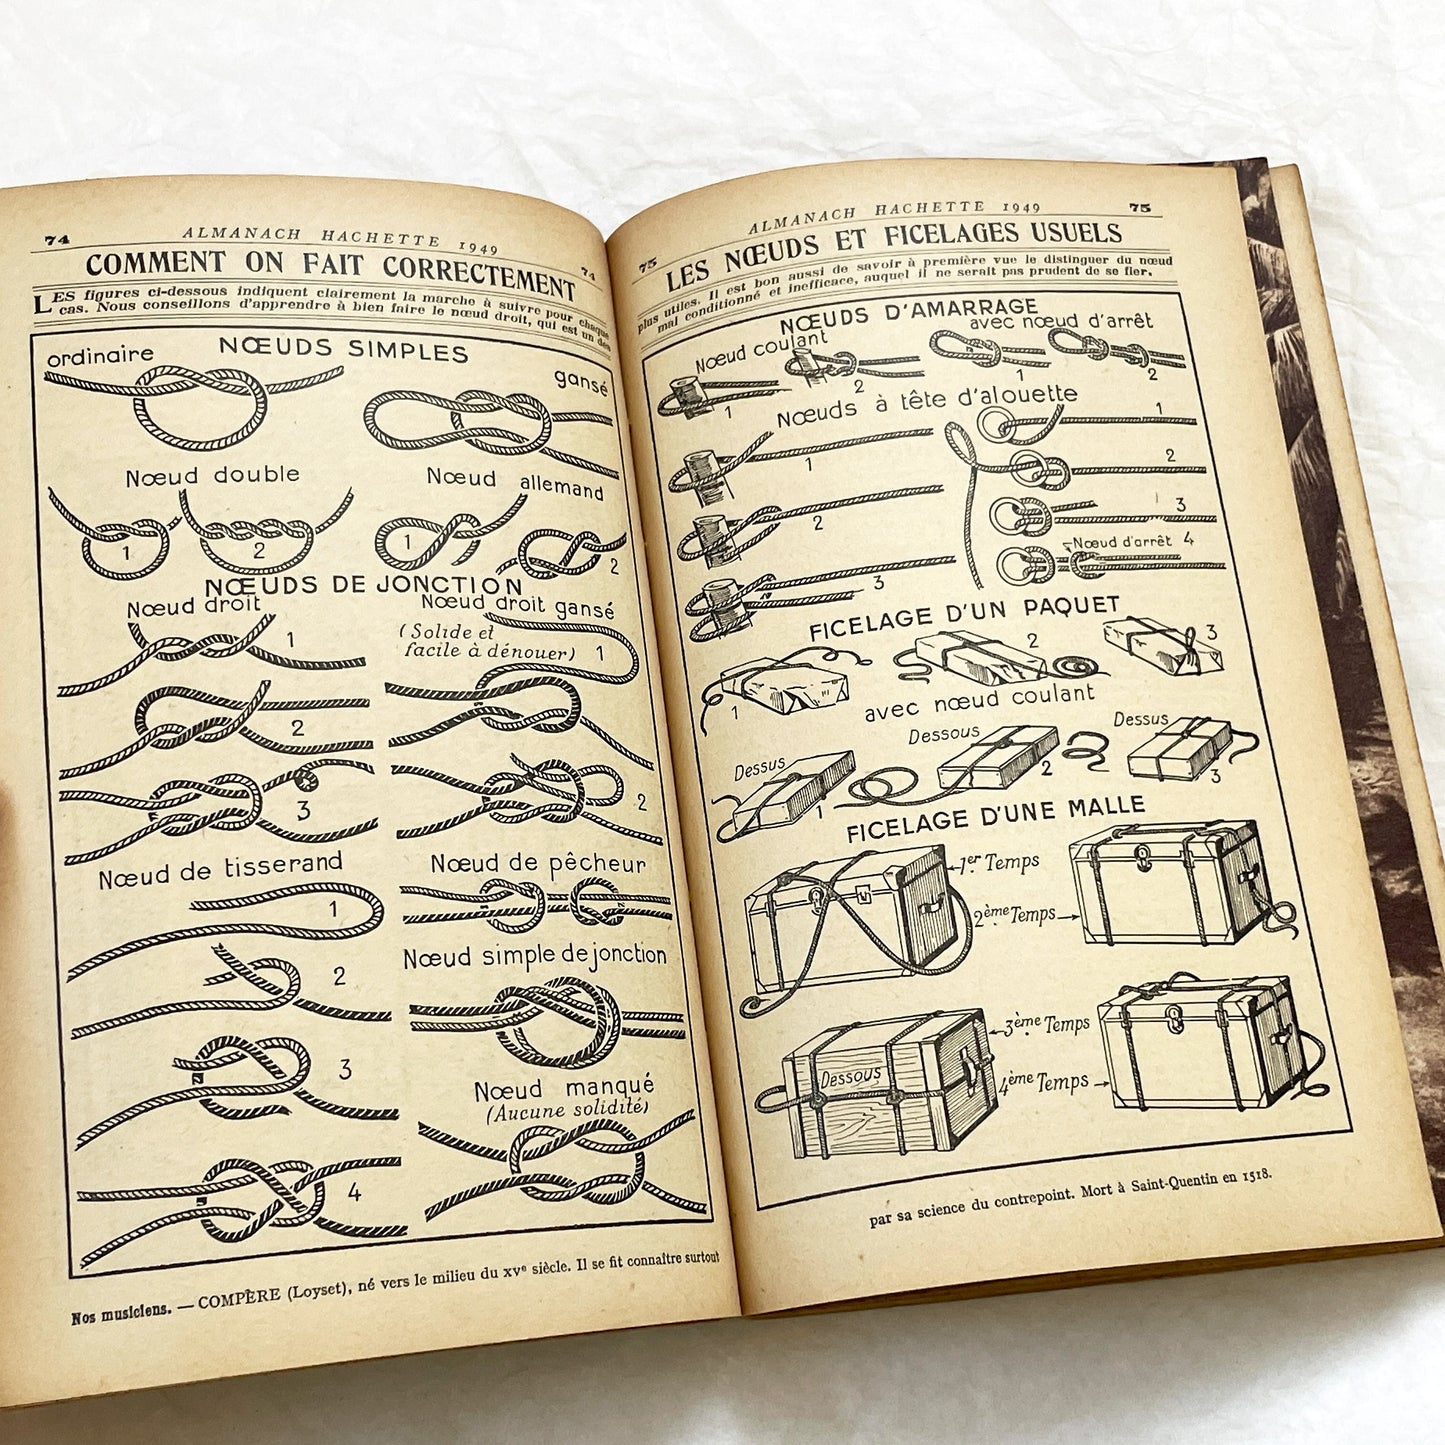 74
ALMANACH HACHETTE 1949
74
COMMENT ON FAIT CORRECTEMENT
LES figures ci-dessous indiquent clairement la marche à suivre pour chaque
cas. Nous conseillons d'apprendre à bien faire le nœud droit, qui est un des
NŒUDS SIMPLES
ordinaire
gansé
Nœud double
Nœud allemand
1
2
1
2
NŒUDS DE JONCTION
Nœud droit
Nœud droit gansé
(Solide et
facile à dénouer)
1
1
2
3
2
Nœud de tisserand
Nœud de pêcheur
1
Nœud simple de jonction
2
3
Nœud manqué
(Aucune solidité)
4
Nos musiciens. — COMPÈRE (Loyset), né vers le milieu du XVe siècle. Il se fit connaître surtout
75
ALMANACH HACHETTE 1949
75
LES NŒUDS ET FICELAGES USUELS
plus utiles. Il est bon aussi de savoir à première vue le distinguer du nœud
mal conditionné et inefficace, auquel il ne serait pas prudent de se fier.
NŒUDS D'AMARRAGE
Nœud coulant
avec nœud d'arrêt
1
2
1
2
Nœuds à tête d'alouette
1
2
3
1
2
3
Nœud d'arrêt 4
FICELAGE D'UN PAQUET
1
2
3
avec nœud coulant
Dessus
1
Dessous
2
Dessus
3
FICELAGE D'UNE MALLE
1er Temps
2ème Temps
3ème Temps
Dessous
4ème Temps
par sa science du contrepoint. Mort à Saint-Quentin en 1518.